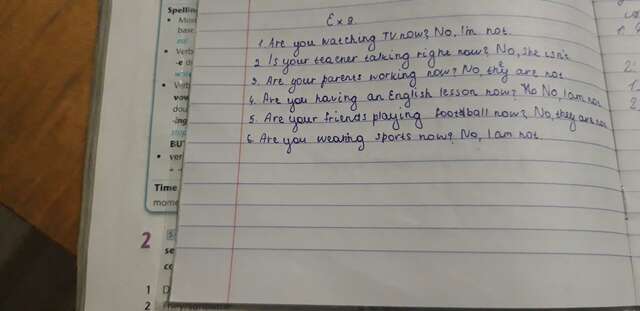 Spelling
• Most
base
• Verb
-e d
• Verb
vow
dou
-ing
stop
BUT
• ver
Time
mome
2
se
co
1 D
2
Ex 2
1. Are you watching TV now? No, I'm not.
2. Is your teacher talking right now? No, she isn't
3. Are your parents working now? No, they are not
4. Are you having an English lesson now? No No, I am not
5. Are your friends playing football now? No, they are not
6. Are you wearing sports now? No, I am not.